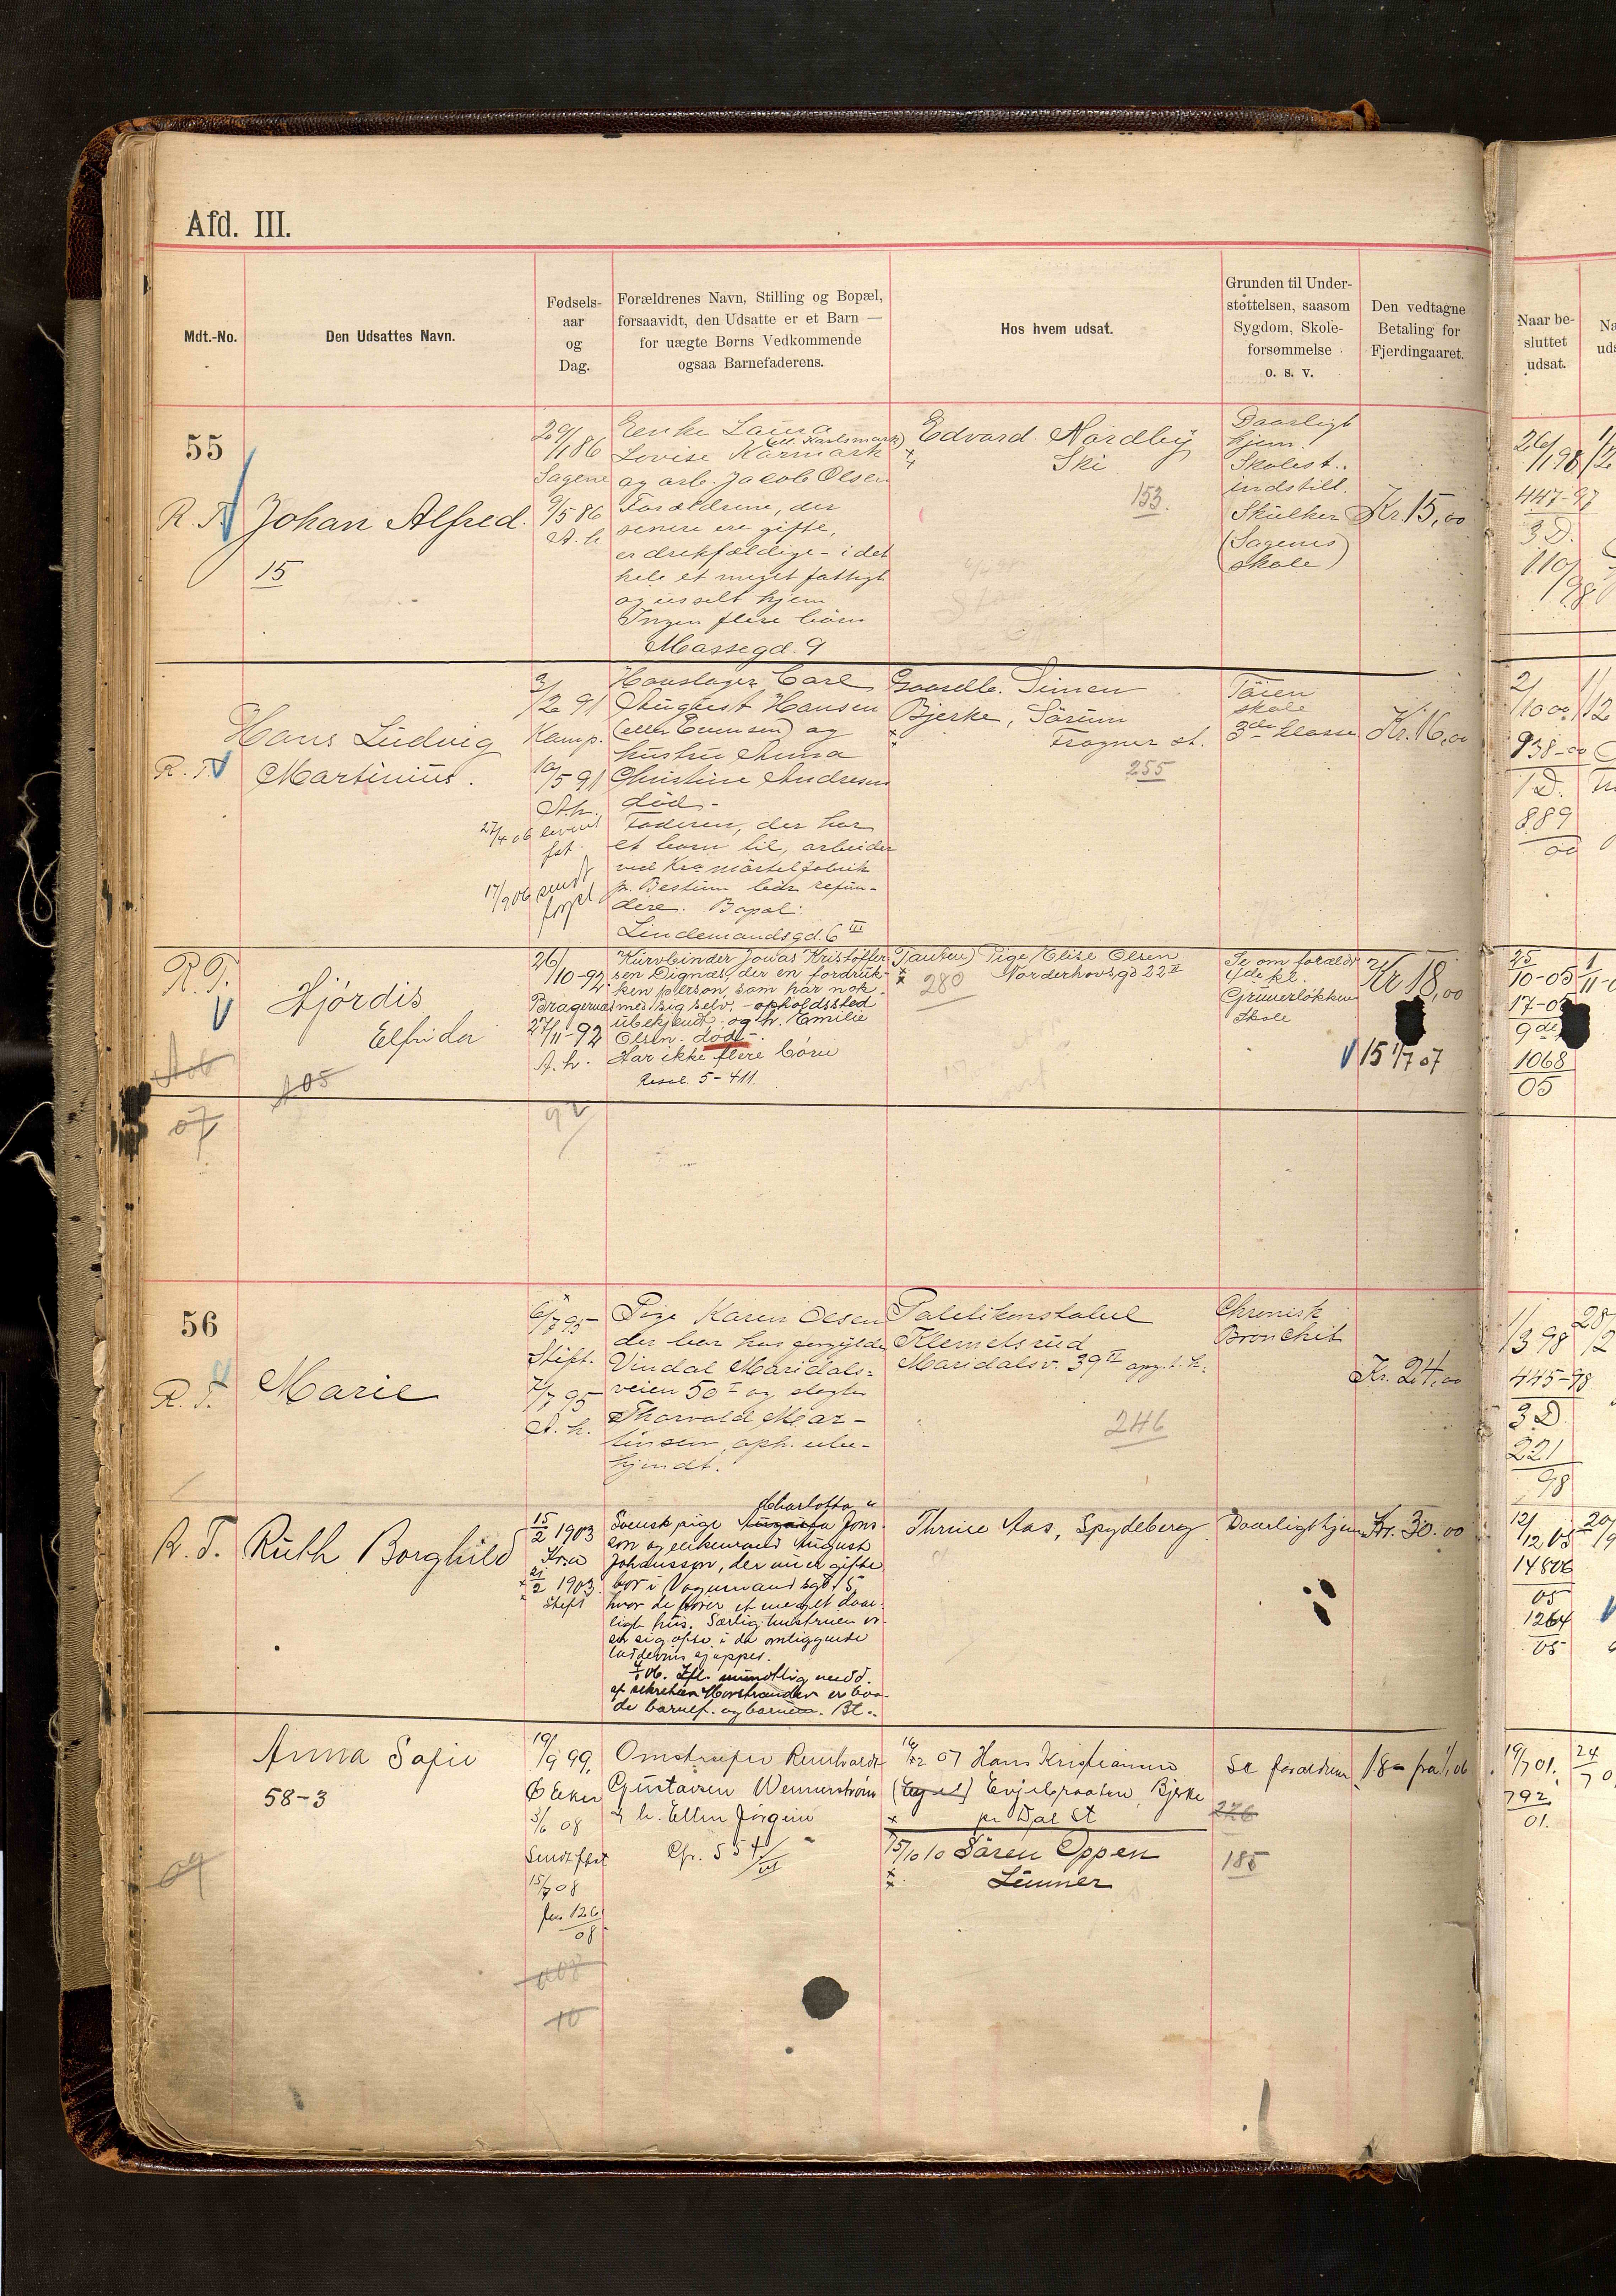 Afd. III.
Mdt.-No.
Den Udsattes Navn.
Fødsels-
aar
og
Dag.
Forældrenes Navn, Stilling og Bopæl,
forsaavidt, den Udsatte er et Barn —
for uægte Børns Vedkommende
ogsaa Barnefaderens.
Hos hvem udsat.
Grunden til Under-
støttelsen, saasom
Sygdom, Skole-
forsømmelse
o. s. v.
Den vedtagne
Betaling for
Fjerdingaaret.
Naar be-
sluttet
udsat.
55
R. T.
Johan Alfred.
15
29/1 86
Sagene
9/5 86
A. h.
Enke Laura
(ell. Karlsmark)
Lovise Karmark
og arb. Jacob Olsen
Forældrene, der
senere ere gifte,
er drikfældige - i det
hele et meget fattigt
og usselt hjem
Ingen flere børn
Massegd. 9
Edvard Nordby
Ski
153.
Daarligt
hjem.
Skolest.
indstill.
Skulker
(Sagenes
skole)
Kr. 15,00
26/1 98
447-97
3 D.
110/98
R. T.
Hans Ludvig
Martinius.
3/2 91
Kamp.
10/5 91
A. h.
27/4 06
17/9 06 sendt
Hauslager Carl
August Hansen
(eller Evensen) og
hustru Anna
Christine Andresen
død -
Faderen, der har
et barn til, arbeider
ved Kra mörtelfabrik
p. Bestum bør refun-
dere. Bopæl:
Lindemandsgd. 6 III
Gaardbr. Simen
Bjerke, Sørum
Frogner st.
255
Tøien
skole
3die klasse
Kr. 16,00
2/10 00
938-00
1 D.
889/00
R. T.
Hjördis
Elfrida
05
07
26/10-92
Bragernæs
27/11-92
A. h.
92
Kurvbinder Jonas Kristoffer-
sen Dignæs, der en fordruk-
ken person, som har nok
med sig selv, - opholdssted
ubekjendt; og h. Emilie
Olsen. død -
Har ikke flere börn
Resol. 5-411.
(Tanten) Pige Elise Olsen
Norderhovsgd 22 II
280
Se om forældr
4de kl.
Grünerløkken
Skole
Kr 18,00
15 1/7 07
25/10-05
17-05
9de
1068/05
56
R. T.
Marie
6/7 95
Stift.
7/7 95
A. h.
Pige Karen Olsen
der bor hos forgylder
Vindal Maridals-
veien 50 I og slagter
Thorvald Mar-
tinsen, oph. ube-
kjendt.
Politikonstabel
Klemetsrud
Maridalsv. 39 II opg. t. h.
246
Chronisk
Bronchit
Kr. 24,00
1/3 98
445-98
3 D.
221/98
R. T.
Ruth Borghild
15/2 1903
Kr.a
21/2 1903
Stift
Charlotta
Svensk pige Augusta Jons-
son og enkemand August
Johansson, der nu er gifte
bor i Vognmandsgd. 5
hvor de fører et meget daar-
ligt hus. Særlig hustruen
06. Ifl. mundtlig medd.
af sekretær Horstrander er baa-
de barnef. og barnem. Bl.
Thrine Aas, Spydeberg
Daarligt hjem
Kr. 30.00
12/12 05
14806/05
1264/05
Anna Sofie
58-3
09
19/9 99.
Ø Eker
3/6 08
Sendt fkt
15/7 08
126/08
10
Omstreifer Reinholdt
Gustavsen Wennerstrøm
& h. Ellen Jörgine
Cfr. 554/01
16/12 07 Hans Kristiansen
Evjebraaten, Bjerke
pr Dal St
15/10 10 Sören Oppen
Lunner
Se forældrene
226
185
18 - fra 1/1 06
19/7 01.
792/01.